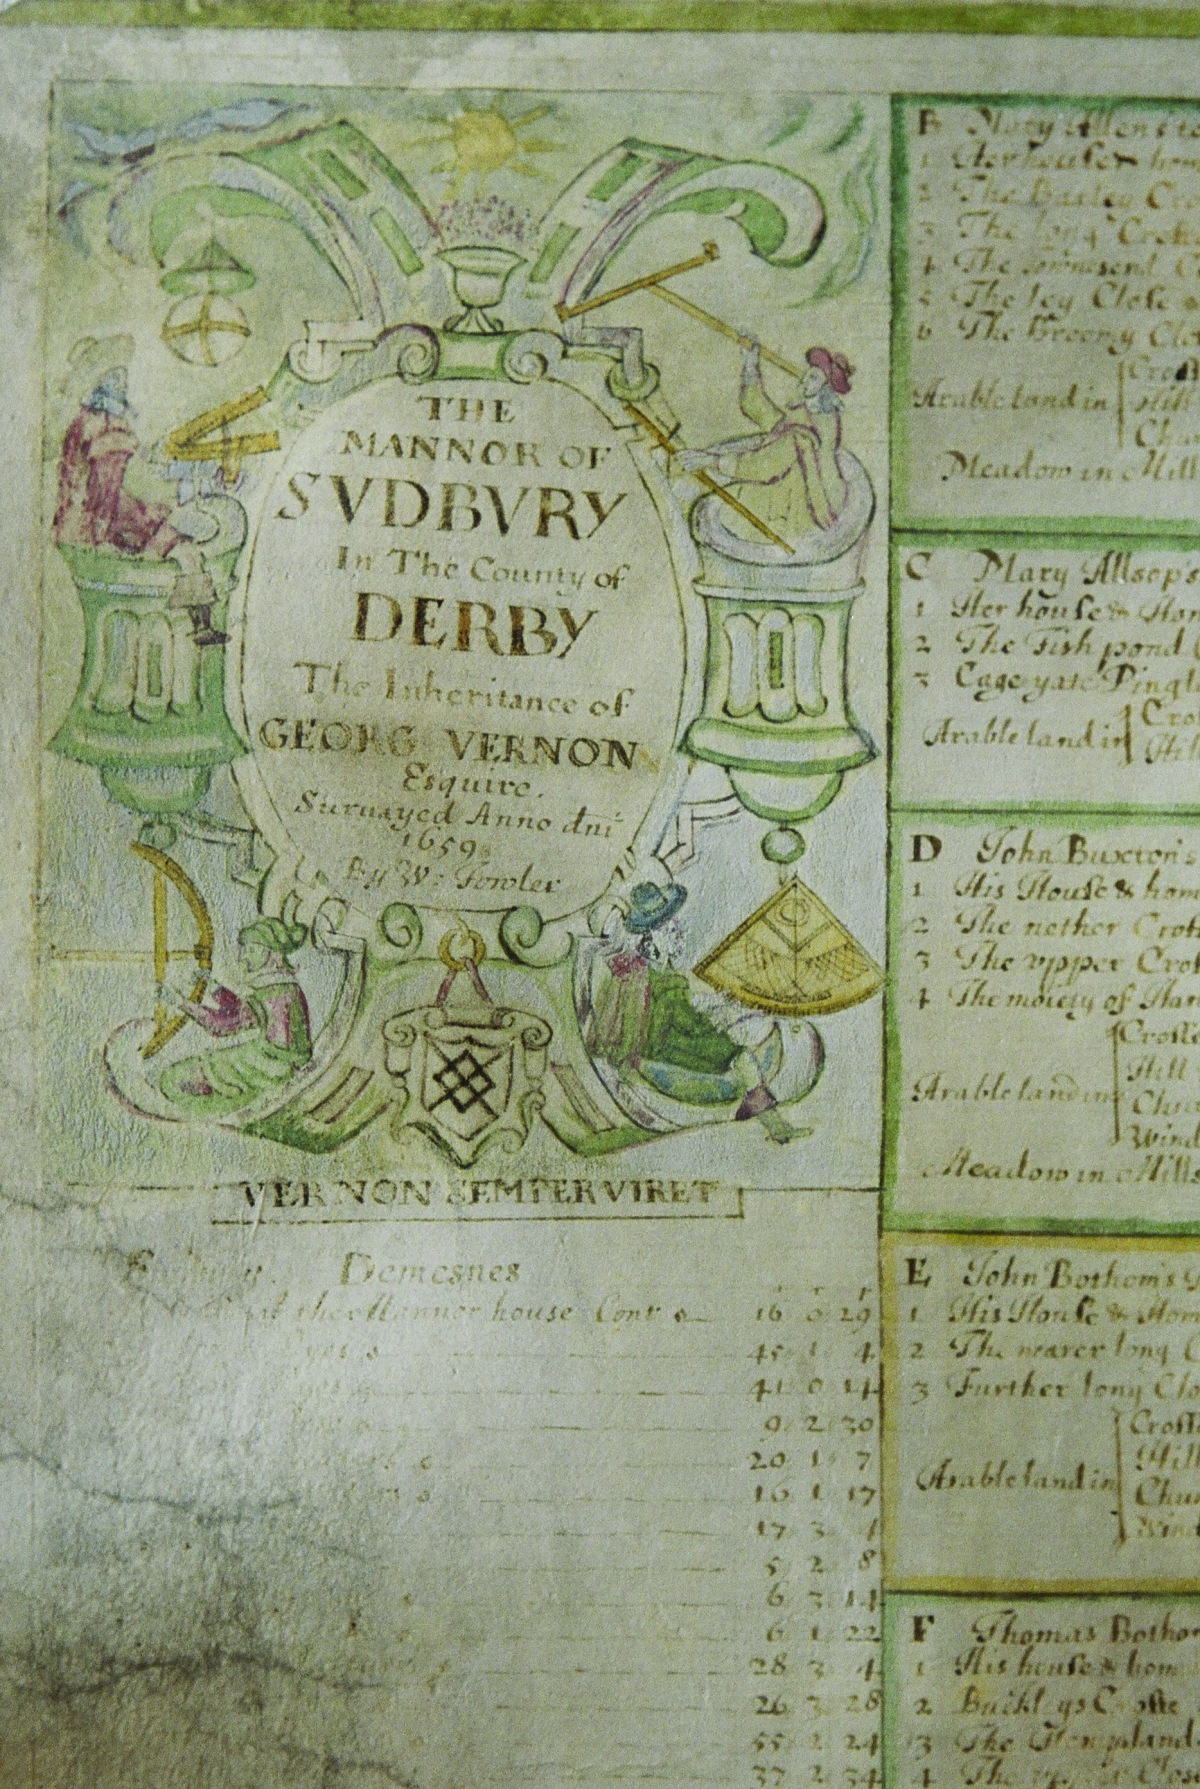 THE
MANNOR OF
SVDBVRY
In The County of
DERBY
The Inheritance of
GEORG VERNON
Esquire.
Survayed Anno dni
1659
By W: Fowler
VERNON SEMPER VIRET
Demesnes
at the Mannor house Cont 16 0 29
45 1 4
41 0 14
9 2 30
20 1 7
16 1 17
17 3
5 2 8
6 3 14
6 1 22
28 3 4
26 3 28
55 2 24
37 2 34
B Mary Allen's
1 Her house & hom
2 The Barley Cro
3 The long Crof
4 The Townsend C
5 The ley Close
6 The Broomy Clo
Arable land in
Meadow in Mill
C Mary Allsop's
1 Her house & Hom
2 The Fish pond
3 Cage yate Pingl
Arable land in
Cro
Hil
D John Buxton's
1 His House & hom
2 The nether Crof
3 The vpper Crof
4 The moiety of Har
Crosse
Hill
Arable land in
Chu
Wind
Meadow in Mills
E John Bothom's
1 His House & Hom
2 The nearer long C
3 Further long Clo
Crosse
Hill
Arable land in
Chu
Wind
F Thomas Bothom
1 His house & hom
2
3 The
4 The